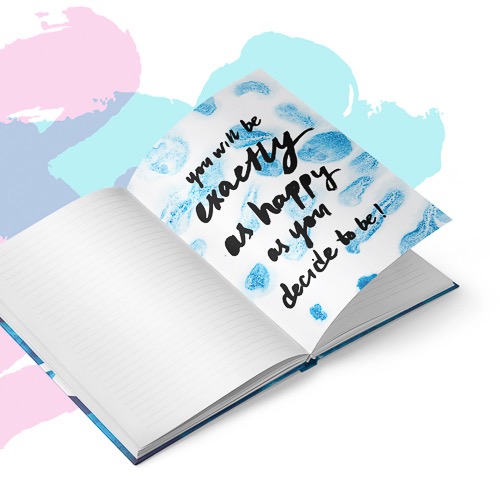 you will be
exactly
as happy
as you
decide to be!